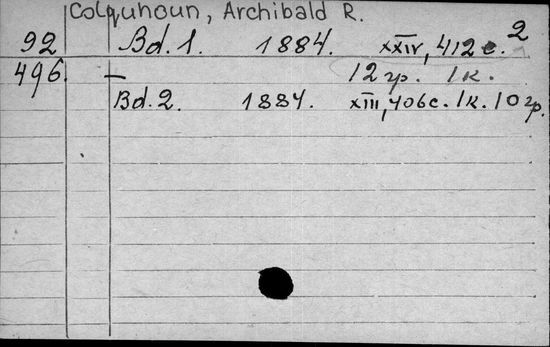 Colquhoun, Archibald R.
2
92 Bd. 1. 1884. XXIV, 412 c.
496. — 12 гр. 1 к.
Bd. 2. 1884. XIII, 406 с. 1 к. 10 гр.